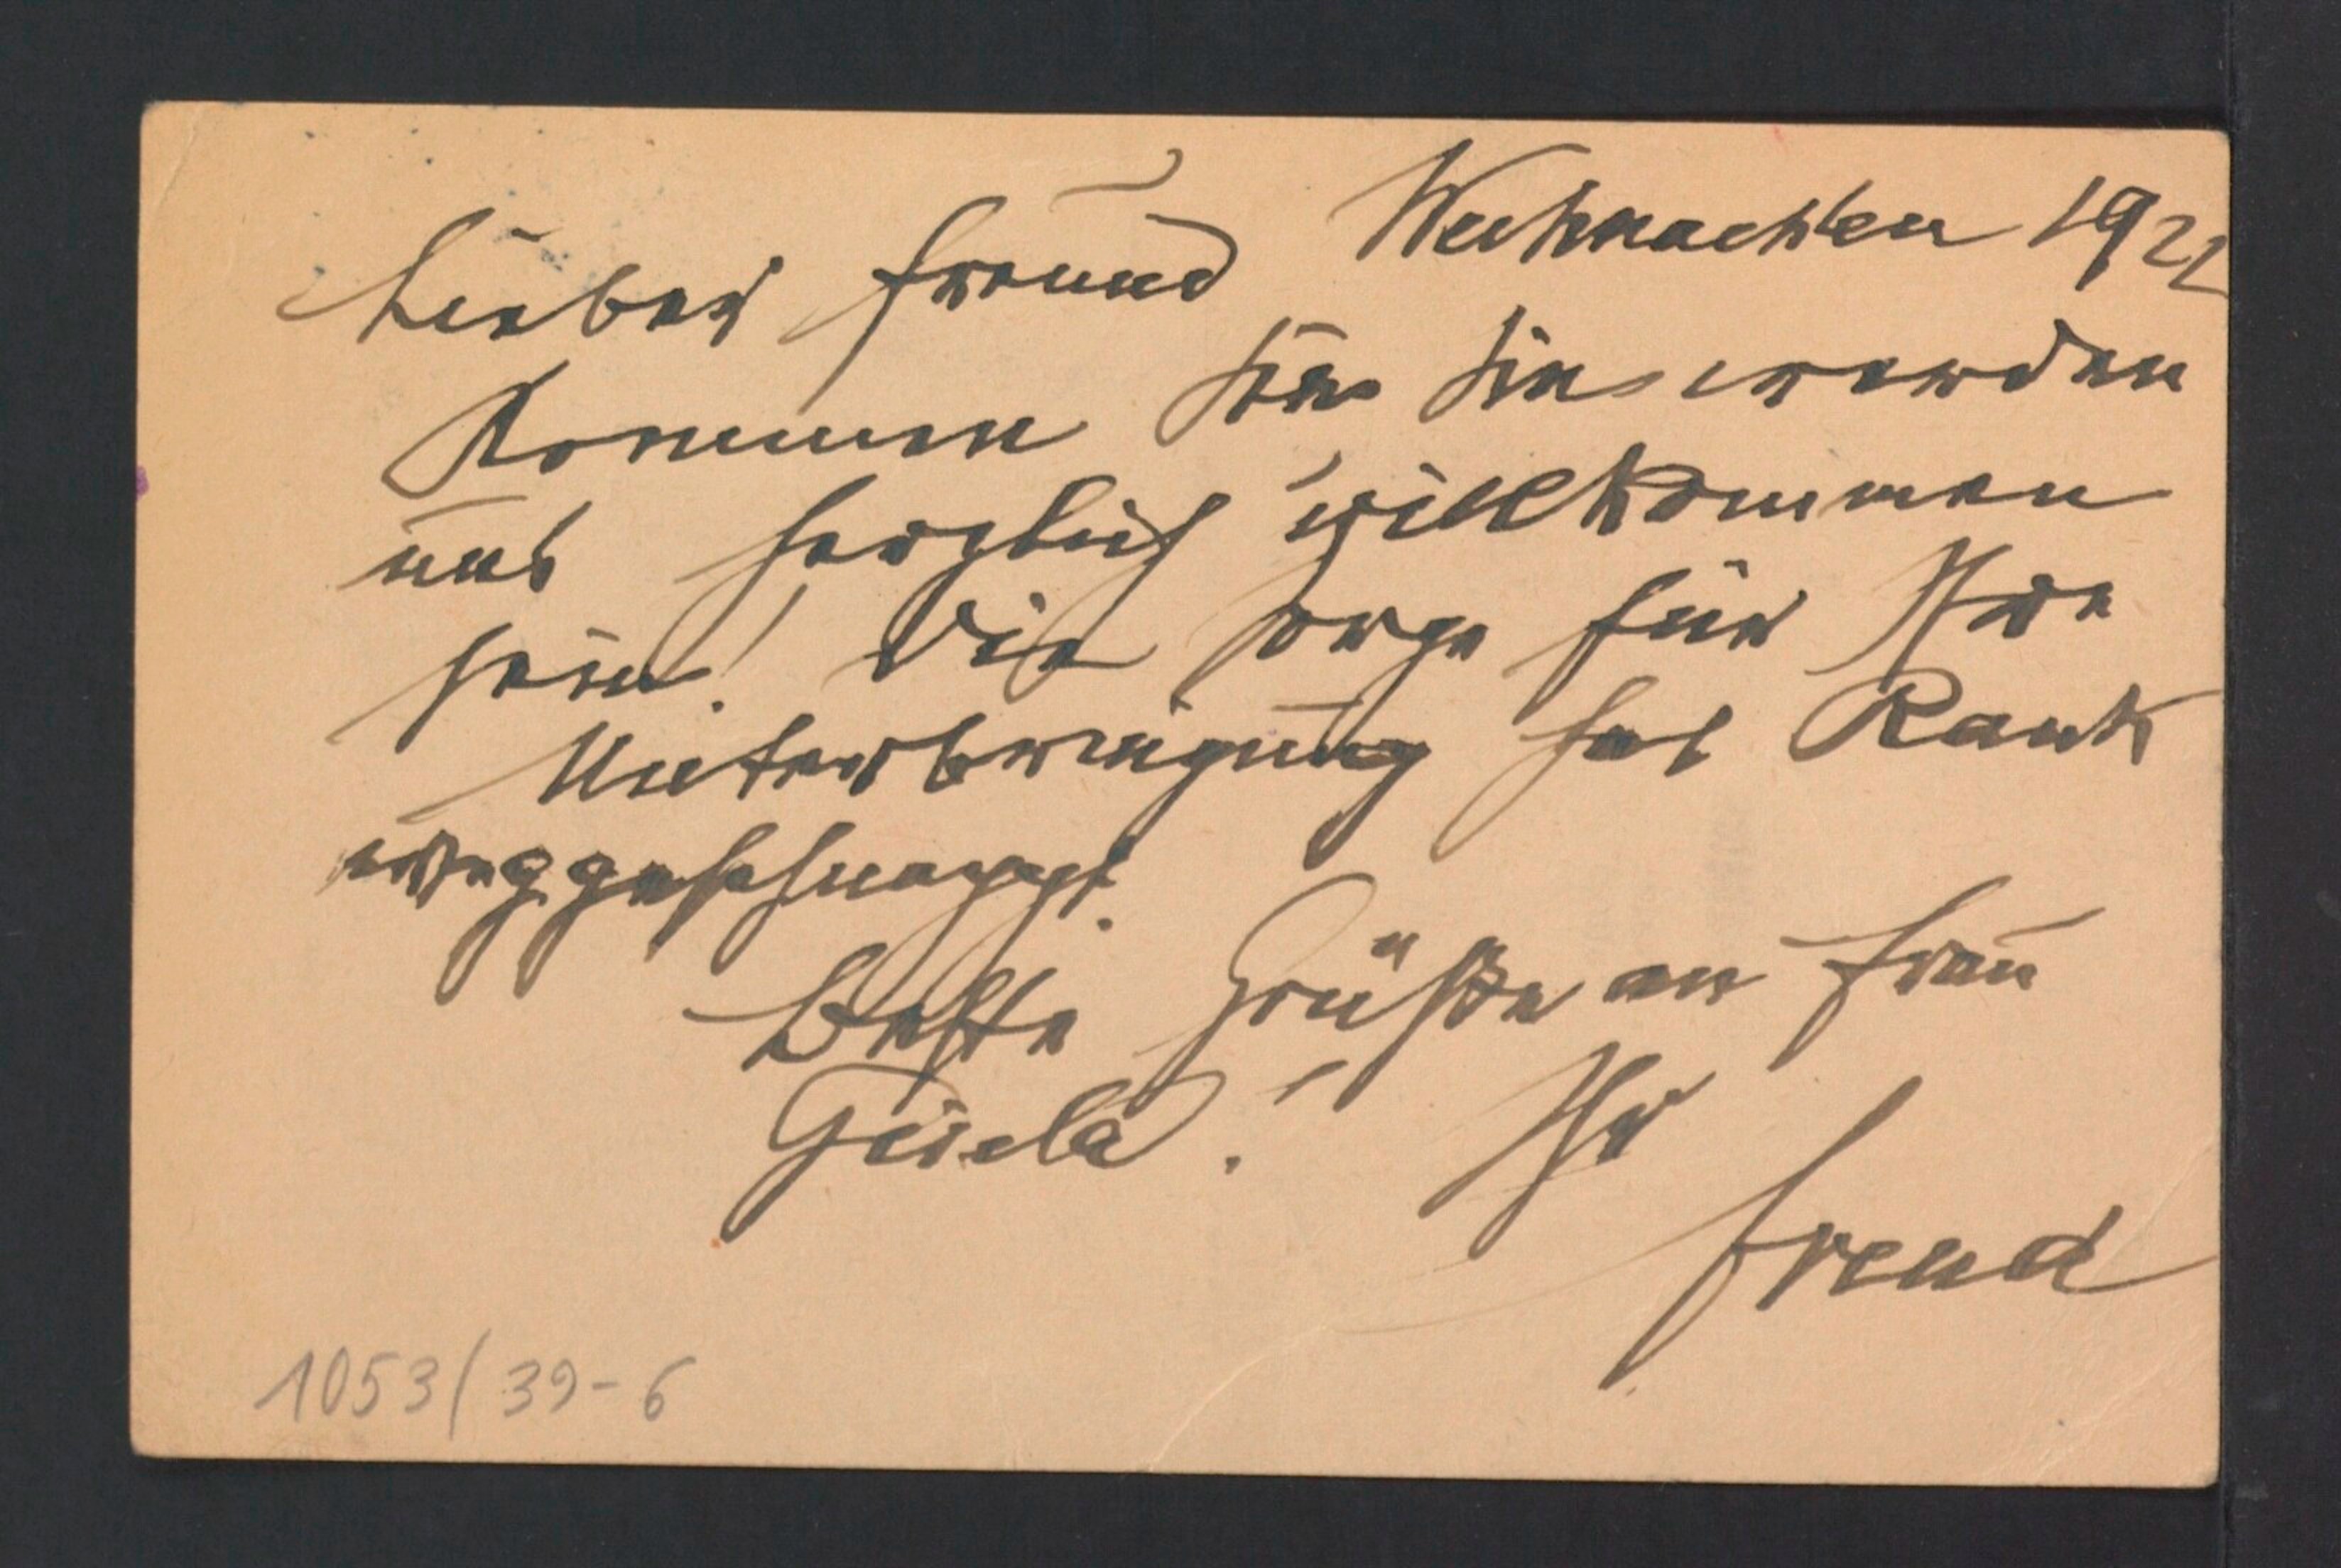 Weihnachten 1922
Lieber Freund
Kommen Sie Sie werden
uns herzlich willkommen
sein! Die Sorge für Ihre
Unterbringung hat Rank
weggeschnappt.
Beste Grüße an Frau
Gisela! Ihr
Freud
1053/39-6